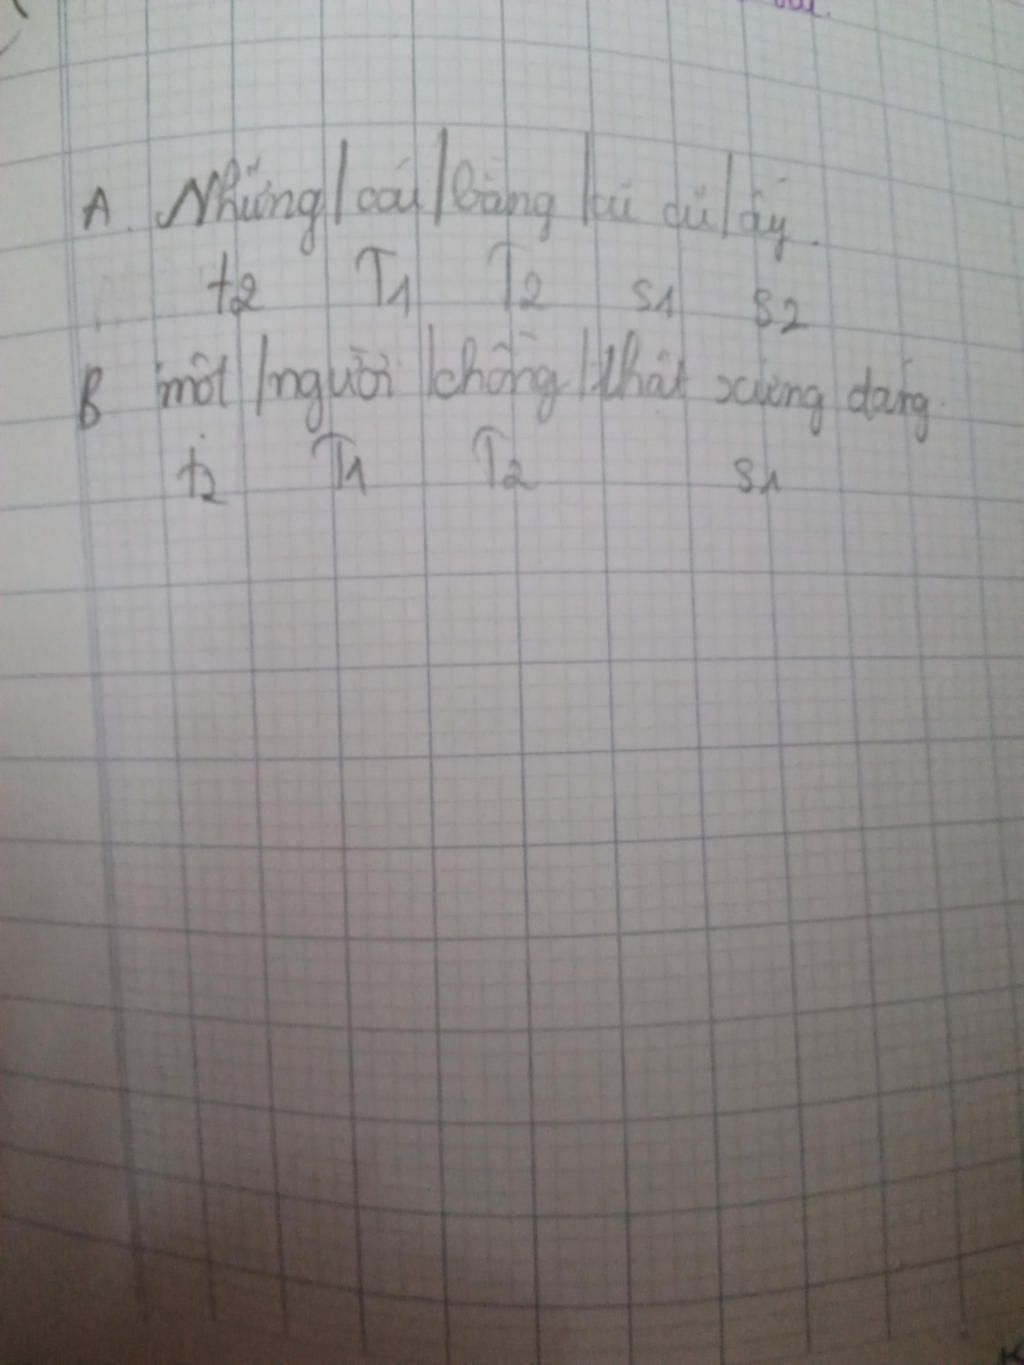 A. Những / cái / bảng / cũ cũ / ấy.
t2 T1 T2 s1 s2
B một / người / chồng / thật xứng đáng.
t2 T1 T2 s1